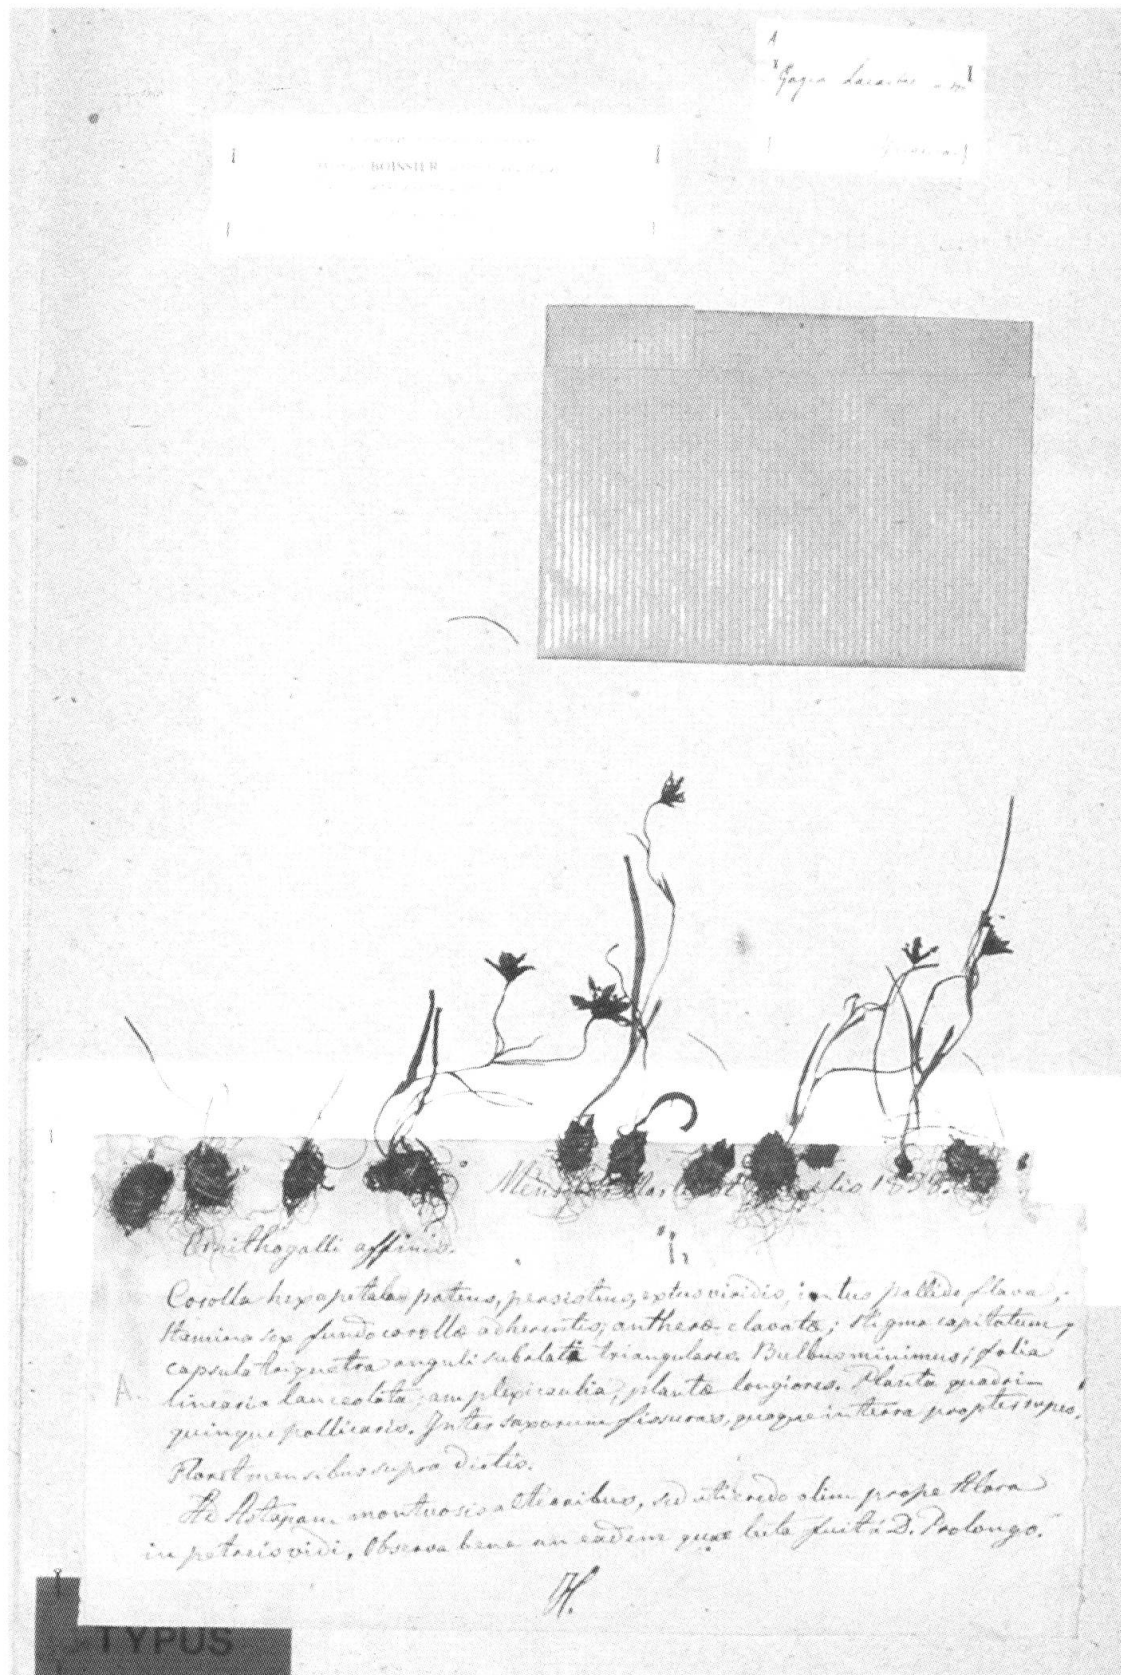 A
Gagea
BOISSIER
Mensibus 1838.
Ornithogalli affinis.
1,
Corolla hexapetala patens, persistens, extus viridis, intus pallide flava,
stamina sex fundo corollæ adherentis; antheræ clavatæ; stigma capitatum,
capsula triquetra anguli subalata triangulares. Bulbus minimus; folia
A.
linearia lanceolata, amplexicaulia, plantæ longiores. Planta quadri-
quinque pollicaris. Inter saxorum fissuras, quoque in terra propter rupes.
Floret mensibus supra dictis.
Ad Astapam montuosis altioribus, sed uti credo olim prope Alora
in petreis vidi. Observa bene an eadem quæ lecta fuit á D. Prolongo.
H.
TYPUS